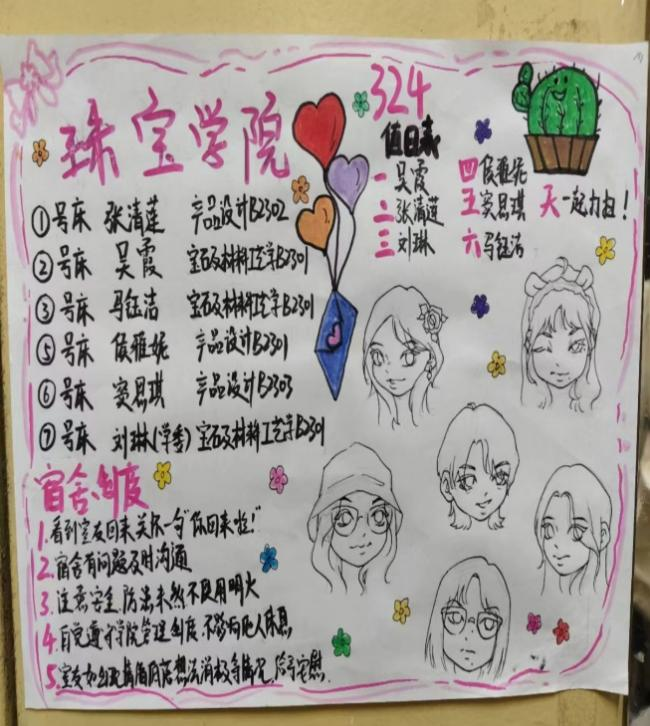 珠宝学院
324
值日表
一 吴霞
二 张清莲
三 刘琳
四 侯雅妮
五 窦恩琪
六 马钰洁
天 一起力扫！
①号床 张清莲 产品设计B2302
②号床 吴霞 宝石及材料工艺学B2301
③号床 马钰洁 宝石及材料工艺学B2301
⑤号床 侯雅妮 产品设计B2301
⑥号床 窦恩琪 产品设计B2303
⑦号床 刘琳(学委) 宝石及材料工艺学B2301
宿舍制度
1.看到室友回来关怀一句"你回来啦！"
2.宿舍有问题及时沟通
3.注意安全,防患未然不使用明火
4.自觉遵守学院管理制度,不影响他人休息
5.室友如出现情绪 想法消极等情况,给予安慰.